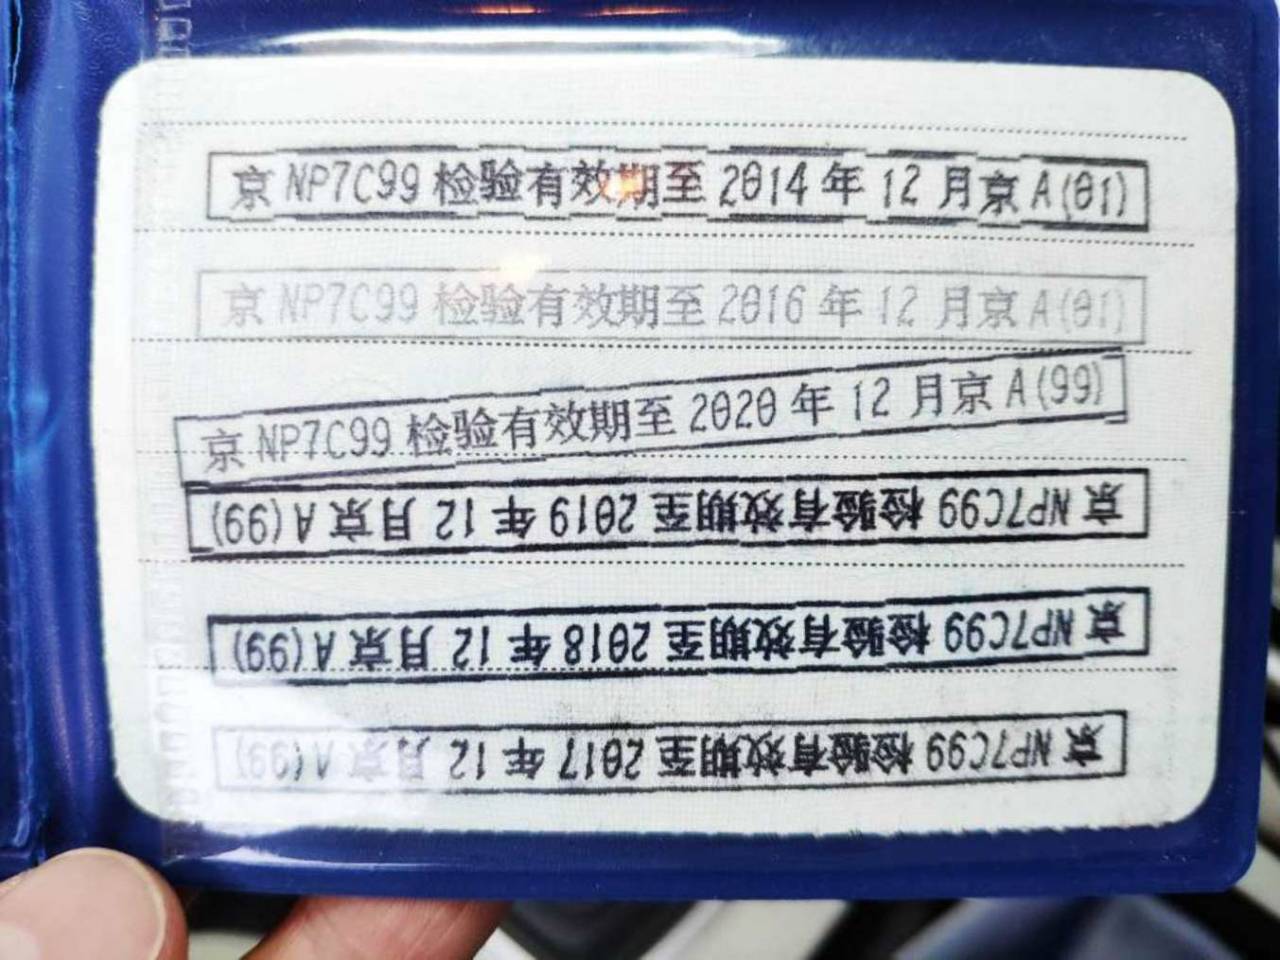 京 NP7C99 检验有效期至 2014 年 12 月京 A(01)
京 NP7C99 检验有效期至 2016 年 12 月京 A(01)
京 NP7C99 检验有效期至 2020 年 12 月京 A(99)
京 NP7C99 检验有效期至 2019 年 12 月京 A(99)
京 NP7C99 检验有效期至 2018 年 12 月京 A(99)
京 NP7C99 检验有效期至 2017 年 12 月京 A(99)